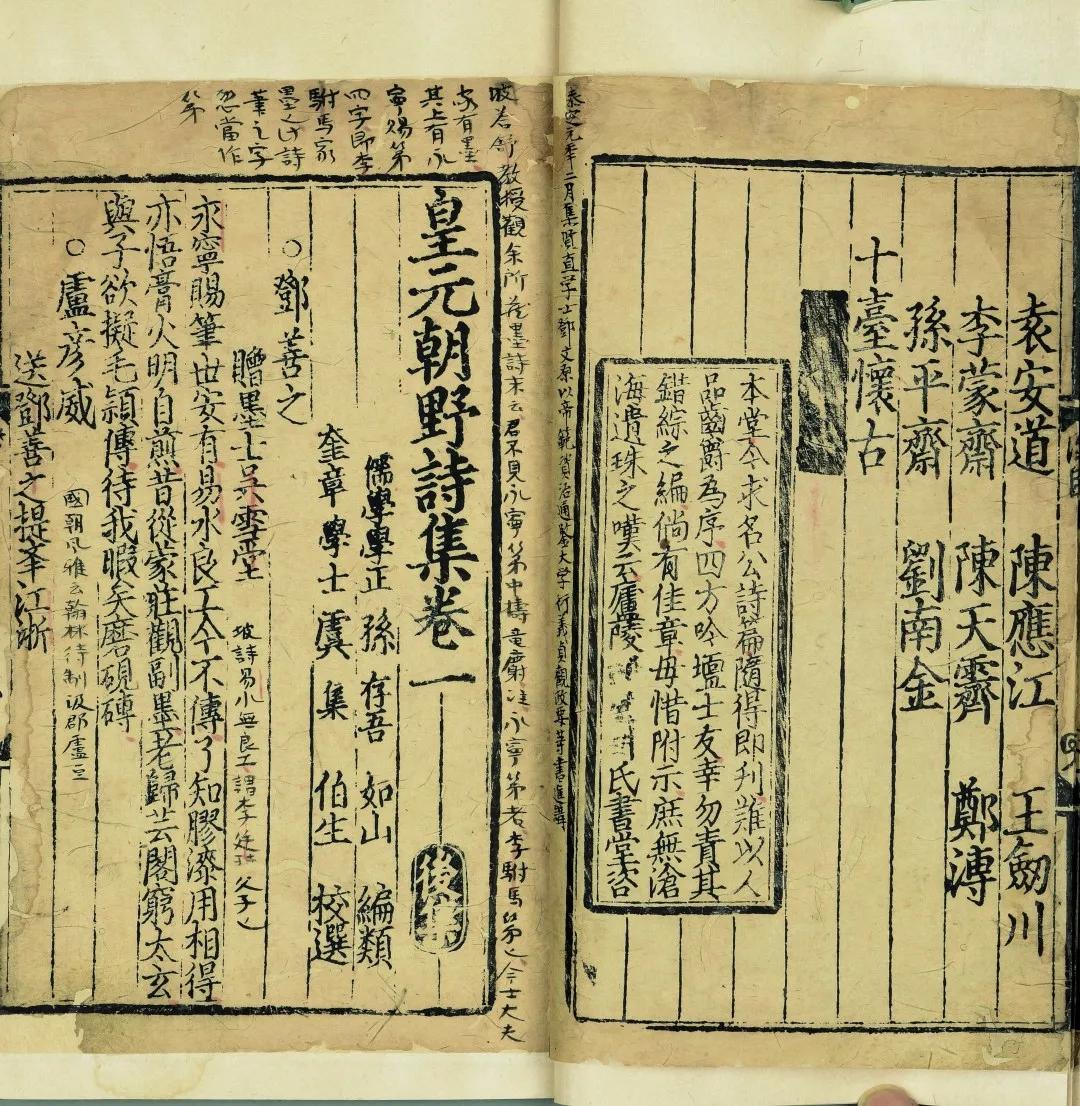 袁安道　陳應江　王劒川
李蒙齋　陳天霽　鄭溥
孫平齋　劉南金
十臺懷古
本堂今求名公詩篇隨得即刋難以人
品齒爵為序四方吟壇士友幸勿責其
錯綜之編倘有佳章毋惜附示庶無滄
海遺珠之嘆云廬陵氏書堂咨
泰定元年二月集賢直学士鄧文原以帝範資治通鑒大学衍義貞觀政要等書進講
坡答舒教授觀余所藏墨詩末云君不見永寧第中擣龍麝
永寧第者李駙馬第也今士大夫
家有墨
其上有永
寧賜第
四字即李
駙馬家
墨也此詩
筆之字
恐當作
第
皇元朝野詩集卷一　後集
儒學學正　孫存吾　如山　編類
奎章學士　虞集　伯生　校選
○鄧善之
贈墨士吳雲堂
坡詩易水無良工謂李廷珪父子也
永寧賜筆世安有易水良工今不傳了知膠漆用相得
亦悟膏火明自煎昔從蒙莊觀副墨老歸芸閣窮太玄
與子欲擬毛頴傳待我暇矣磨硯磚
○盧彥威
國朝風雅云翰林待制汲郡盧亘
送鄧善之提舉江浙